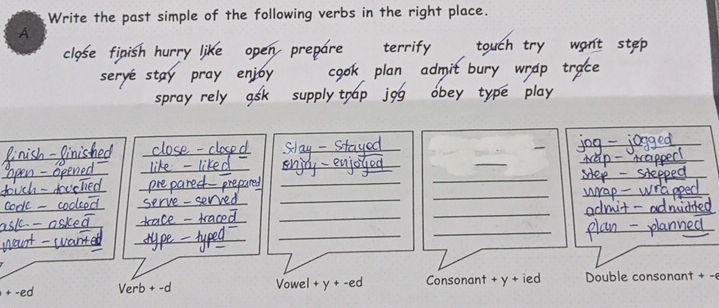 A
Write the past simple of the following verbs in the right place.
close finish hurry like open prepare terrify touch try want step
serve stay pray enjoy cook plan admit bury wrap trace
spray rely ask supply trap jog obey type play
finish - finished
open - opened
touch - touched
cook - cooked
ask - asked
want - wanted
+ -ed
close - closed
like - liked
prepared - prepared
serve - served
trace - traced
type - typed
Verb + -d
stay - stayed
enjoy - enjoyed
Vowel + y + -ed
Consonant + y + ied
jog - jogged
trap - trapped
step - stepped
wrap - wrapped
admit - admitted
plan - planned
Double consonant + -e